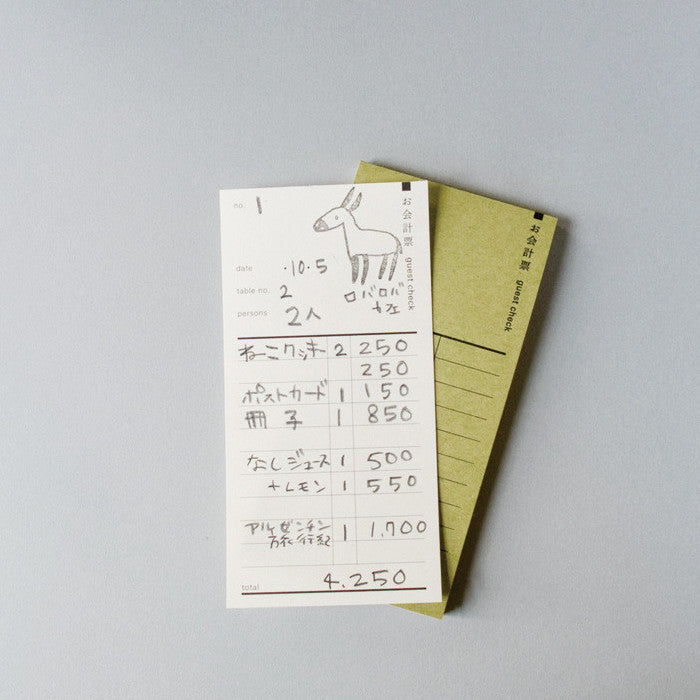 no. 1
お会計票 guest check
date ・10・5
table no. 2
persons 2人
ロバロバ
カフェ
ねこクッキー 2 250
250
ポストカード 1 150
冊子 1 850
なしジュース 1 500
+レモン 1 550
アルゼンチン 1 1,700
旅行紀
total 4.250
お会計票 guest check